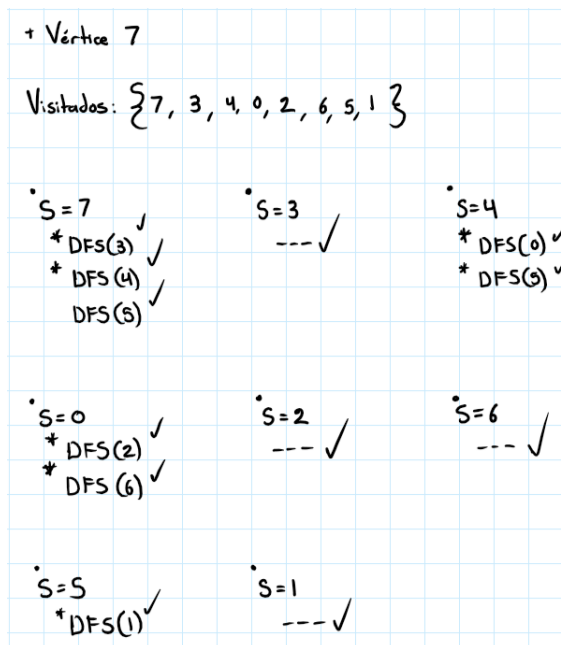 + Vértice 7
Visitados: {7, 3, 4, 0, 2, 6, 5, 1}
• S=7
* DFS(3) ✓
* DFS(4) ✓
DFS(5) ✓
• S=3
--- ✓
• S=4
* DFS(0) ✓
* DFS(5) ✓
• S=0
* DFS(2) ✓
* DFS(6) ✓
• S=2
--- ✓
• S=6
--- ✓
• S=5
* DFS(1) ✓
• S=1
--- ✓